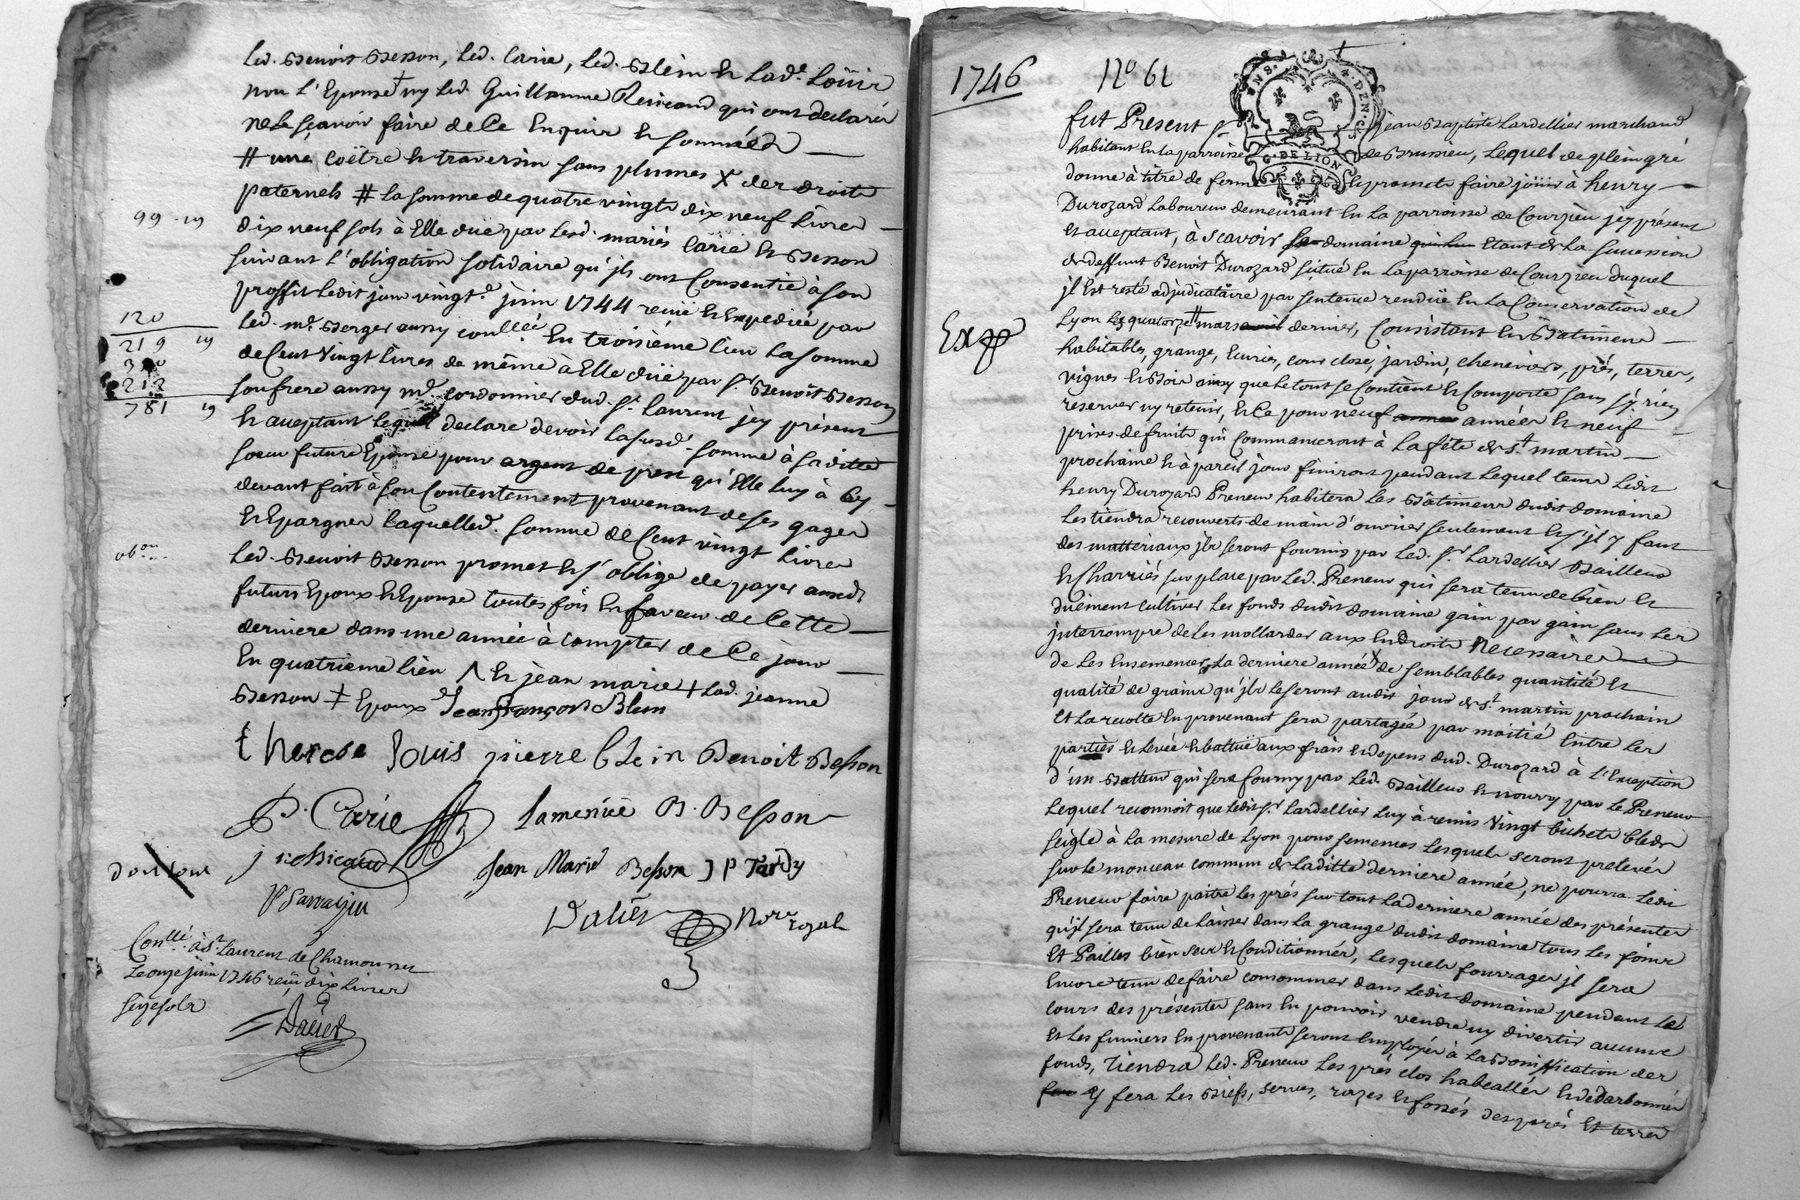 Led. Benoit Besson, Led. Carie, Led. Blein et Lad.e Loüis
non L'Epouse + ny Led. Guillaume Rericaud qui ont declarés
ne le sçavoir faire de Ce Enquis et sommés
# une Coëtre et traversin sans plumes X des droits
paternels # La somme de quatre vingts dix neuf Livres
99 - 19
dix neuf sols à Elle düe par Lesd. mariés Carie et Besson
suivant L'obligation solidaire qu'jls ont Consentie à son
proffit Ledit jour vingt.e juin 1744 reçüe et Expediée par
Led. m.e Berger aussy Conllée En troisième Lieu La somme
120
219 19
350
212
781 19
de Cent Vingt Livres de même à Elle düe par s.r Benoit Besson
son frere aussy m.e cordonnier dud. S.t Laurent jcy présent
et acceptant Lequel declare devoir Lasusd. somme à Saditte
soeur future Epouse pour argent de prest qu'Elle Luy à Cy
devant fait à son Contentement provenant de ses gages
et Epargnes Laquelled. somme de Cent vingt Livres
ob.on
Led. Benoit Besson promet et s'oblige de payer auxd.
futurs Epoux et Epouse toutes fois En faveur de Cette
derniere dans une année à Compter de Ce jour
En quatrieme Lieu Λ et jean marie + Lad. jeanne
Besson ‡ Epoux Jean François Blein
therese Louis pierre Blein Benoit Besson
P. Carie Lamerüe B. Besson
Jean Marie Besson J P Tardy
P Sarrazin
Daliès Nor.re royal
Conllé à S.t Laurent de Chamousset
Le onze juin 1746 reçu dix Livres
seize sols
Daliès
1746 N.o 61
G. DE LION
fut Present s.r jean Baptiste Lardellier marchand
habitant En la parroisse de Brussieu, Lequel de plein gré
donne à titre de ferme et promet faire joüir à henry
Durozard Laboureur demeurant En La parroisse de Courzieu jcy présent
et acceptant, à scavoir Le domaine Etant de La succession
de deffunt Benoit Durozard situé En La parroisse de Courzieu duquel
jl Est resté adjudicataire par sentence rendüe En La Conservation de
Exp
Lyon Le quatorze mars dernier, Consistant En Batiments
habitables, grange, Ecuries, cour close, jardin, cheneviers, prés, terres,
vignes et Bois ainsy que Le tout se Contient et Comporte sans s'y rien
reserver ny retenir, et Ce pour neuf années et neuf
prises de fruits qui Commanceront à La fête de S.t martin
prochaine et à pareil jour finiront pendant Lequel tems Ledit
henry Durozard Preneur habitera Les Bâtimens dudit domaine
Les tiendra recouverts de main d'ouvrier seulement et s'jl y faut
des matteriaux jls seront fournis par Led. s.r Lardellier Bailleur
et Charriés sur place par Led. Preneur qui sera tenu de bien et
düement cultiver Les fonds dudit domaine gain par gain sans Les
jnterrompre de Les mollarder aux Endroits Nécessaires
de Les Ensemencer La derniere année de semblables quantité et
qualité de grains qu'jls Le seront audit jour de S.t martin prochain
et La recolte En provenant sera partagée par moitié Entre Les
parties et Levée et battüe aux frais et depens dud. Durozard à L'Exception
d'un Batteur qui sera fourny par Led. Bailleur et nourry par Le Preneur
Lequel reconnoit que Ledit s.r Lardellier Luy à remis Vingt Bichets Bled
seigle à La mesure de Lyon pour semences Lesquels seront prelevés
sur Le monceau commun de Laditte derniere année, ne pourra Ledit
Preneur faire paitre Les prés sur tout La derniere année des présentes
qu'jl sera tenu de Laisser dans La grange dudit domaine tous Les foins
et Pailles bien secs et Conditionnés, Lesquels fourrages jl sera
Encore tenu de faire consommer dans Ledit domaine pendant Le
cours des présentes sans En pouvoir vendre ny divertir aucuns
et Les fumiers En provenants seront Employés à La Bonification des
fonds, Tiendra Led. Preneur Les prés clos habeallés et dedarbonnés
y fera Les Biefs, serves, razes et fossés des prés et terres